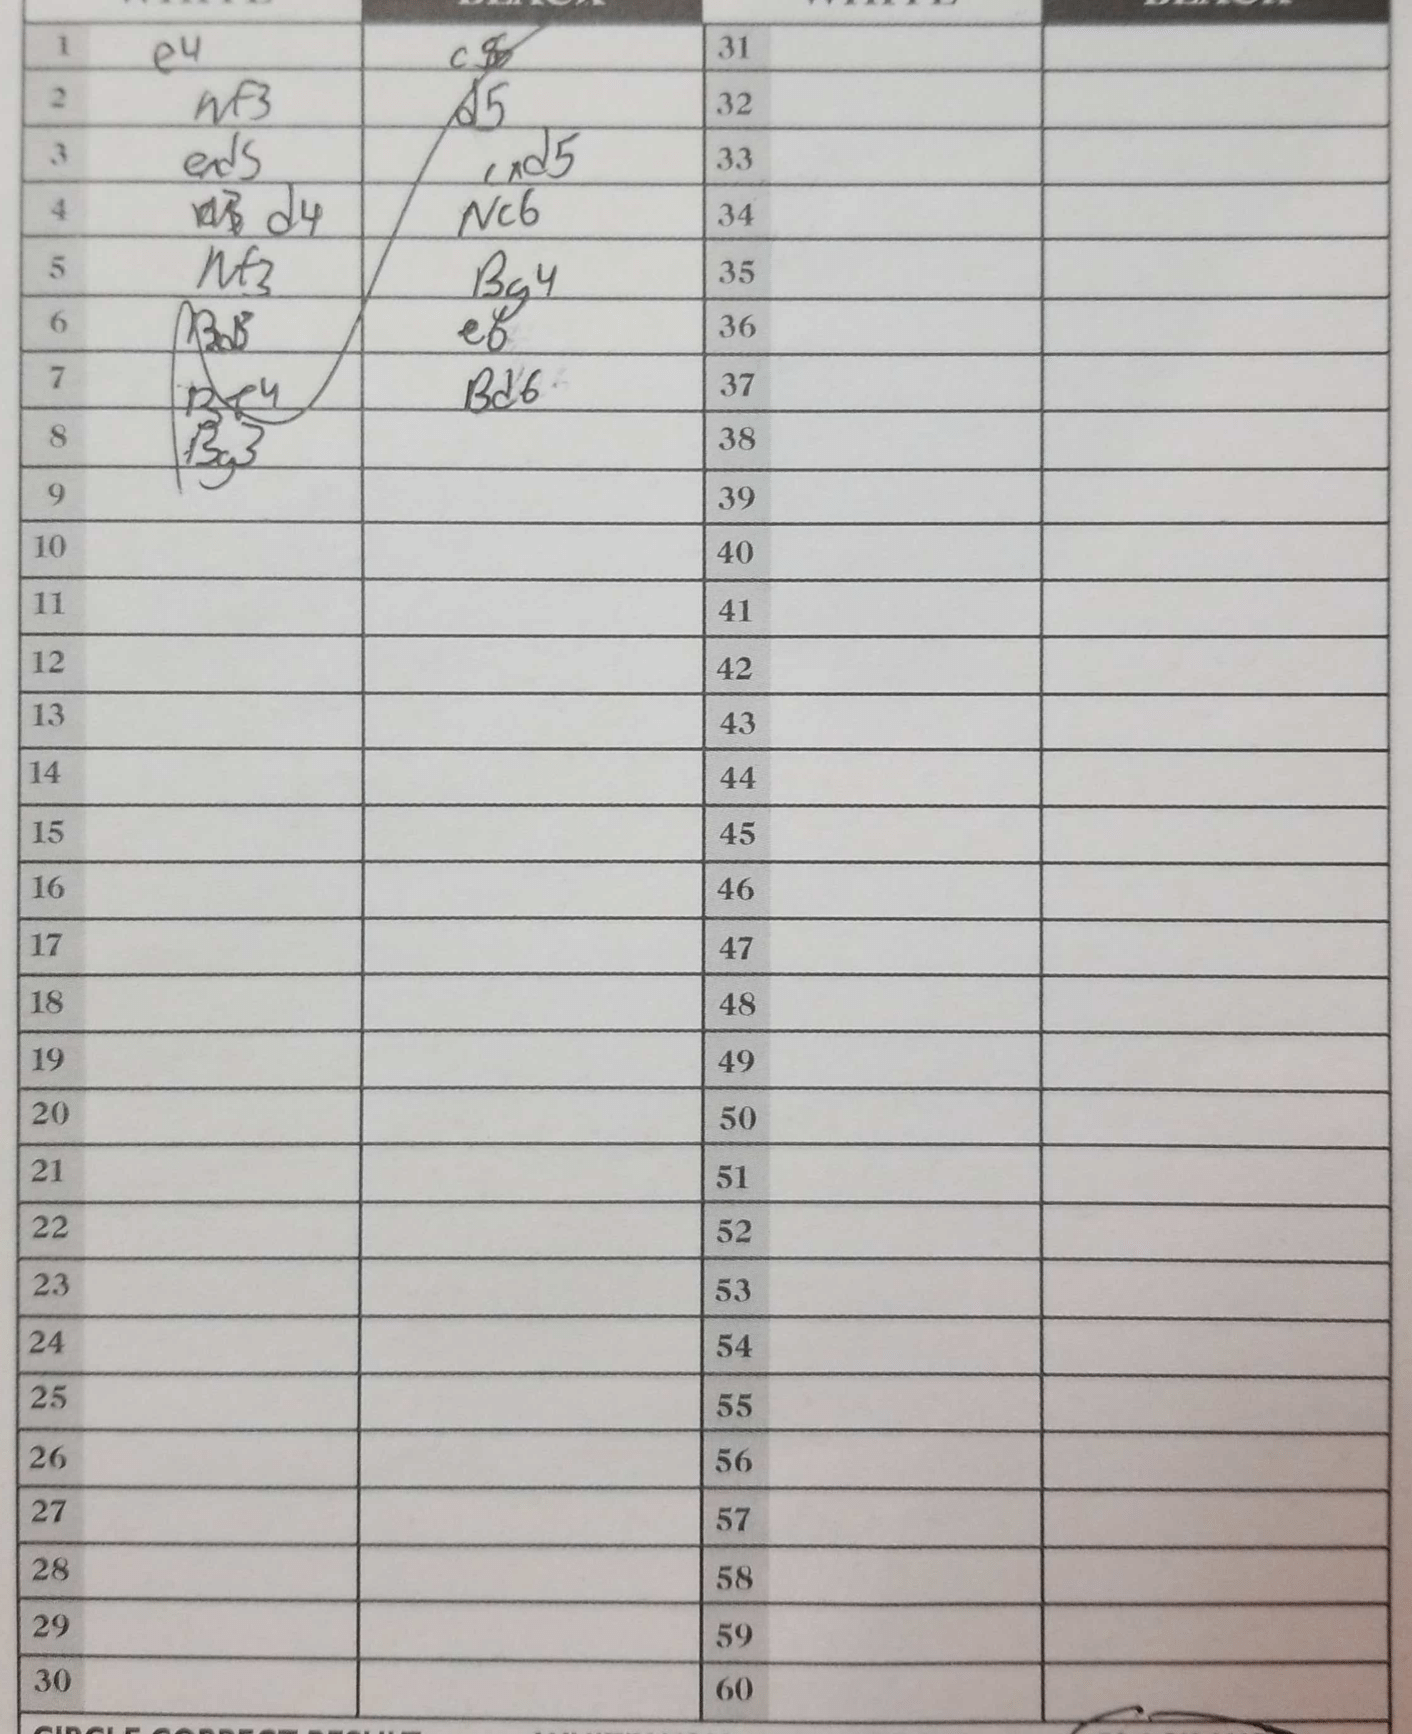 WHITE BLACK WHITE BLACK
1 e4 c6 31
2 Nf3 d5 32
3 exd5 cxd5 33
4 d4 Nc6 34
5 Nf3 Bg4 35
6 e6 36
7 Bf4 Bd6 37
8 Bg3 38
9 39
10 40
11 41
12 42
13 43
14 44
15 45
16 46
17 47
18 48
19 49
20 50
21 51
22 52
23 53
24 54
25 55
26 56
27 57
28 58
29 59
30 60
CIRCLE CORRECT RESULT